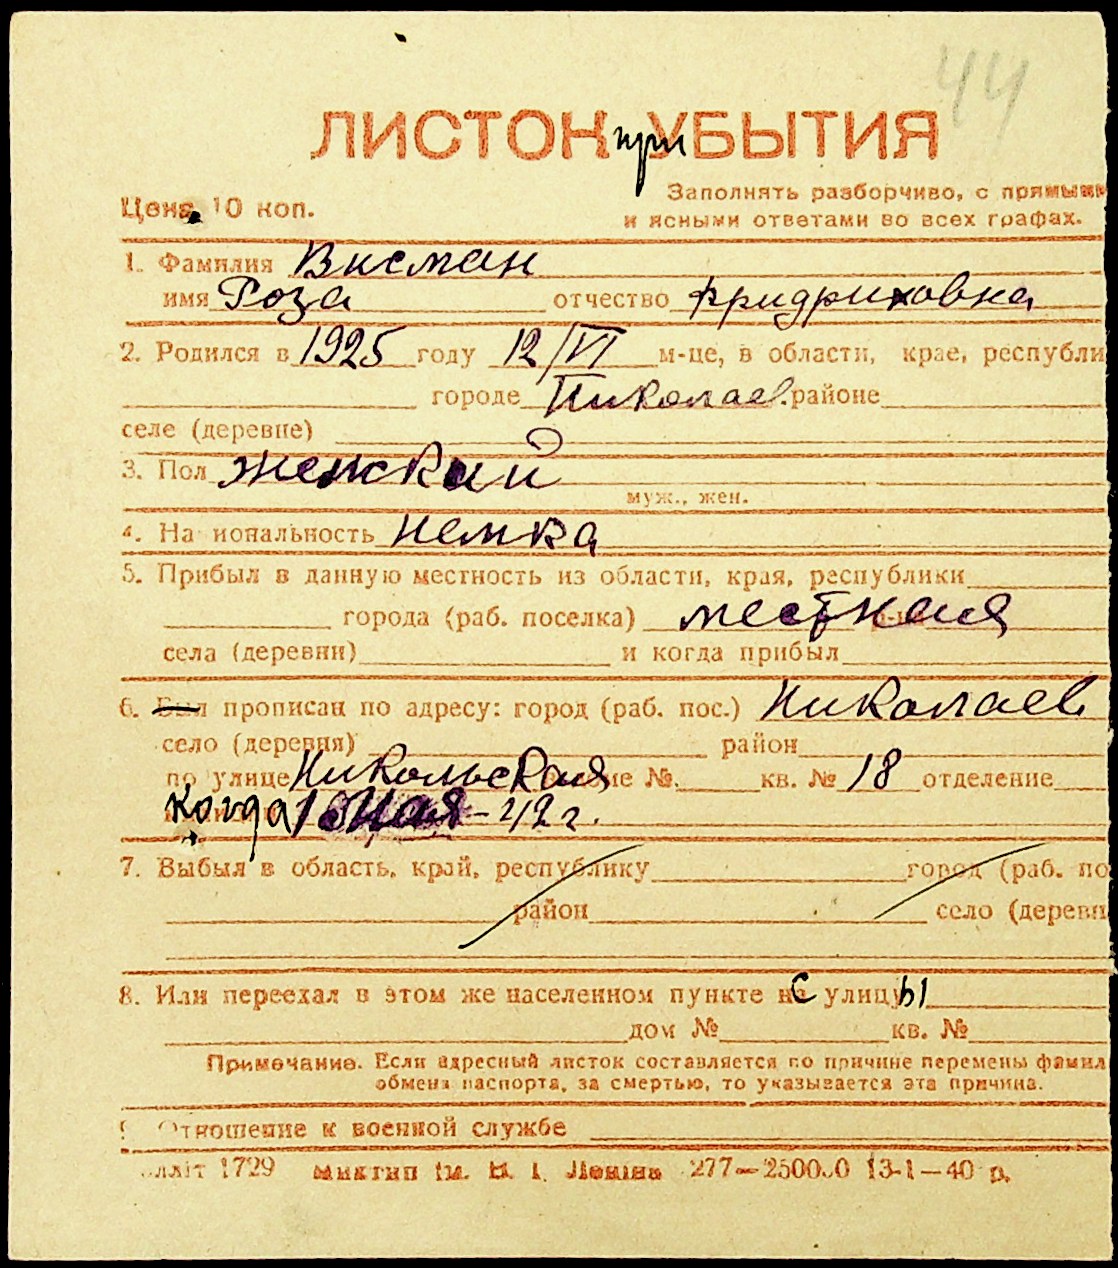 44
ЛИСТОК при УБЫТИЯ
Цена 10 коп.
Заполнять разборчиво, с прямыми
и ясными ответами во всех графах.
1. Фамилия Висман
имя Роза отчество Фридриховна
2. Родился в 1925 году 12/VI м-це, в области, крае, республи
городе Николаев районе
селе (деревне)
3. Пол женский
муж., жен.
4. На иональность немка
5. Прибыл в данную местность из области, края, республики
города (раб. поселка) местная
села (деревни) и когда прибыл
6. Был прописан по адресу: город (раб. пос.) Николаев
село (деревня) район
по улице Никольская № кв. № 18 отделение
Когда 42 г.
7. Выбыл в область, край, республику город (раб. по
район село (деревн
8. Или переехал в этом же населенном пункте с улицы
дом № кв. №
Примечание. Если адресный листок составляется по причине перемены фамил
обмена паспорта, за смертью, то указывается эта причина.
Отношение к военной службе
1729 им. Леніна 277—250000 13-1—40 р.